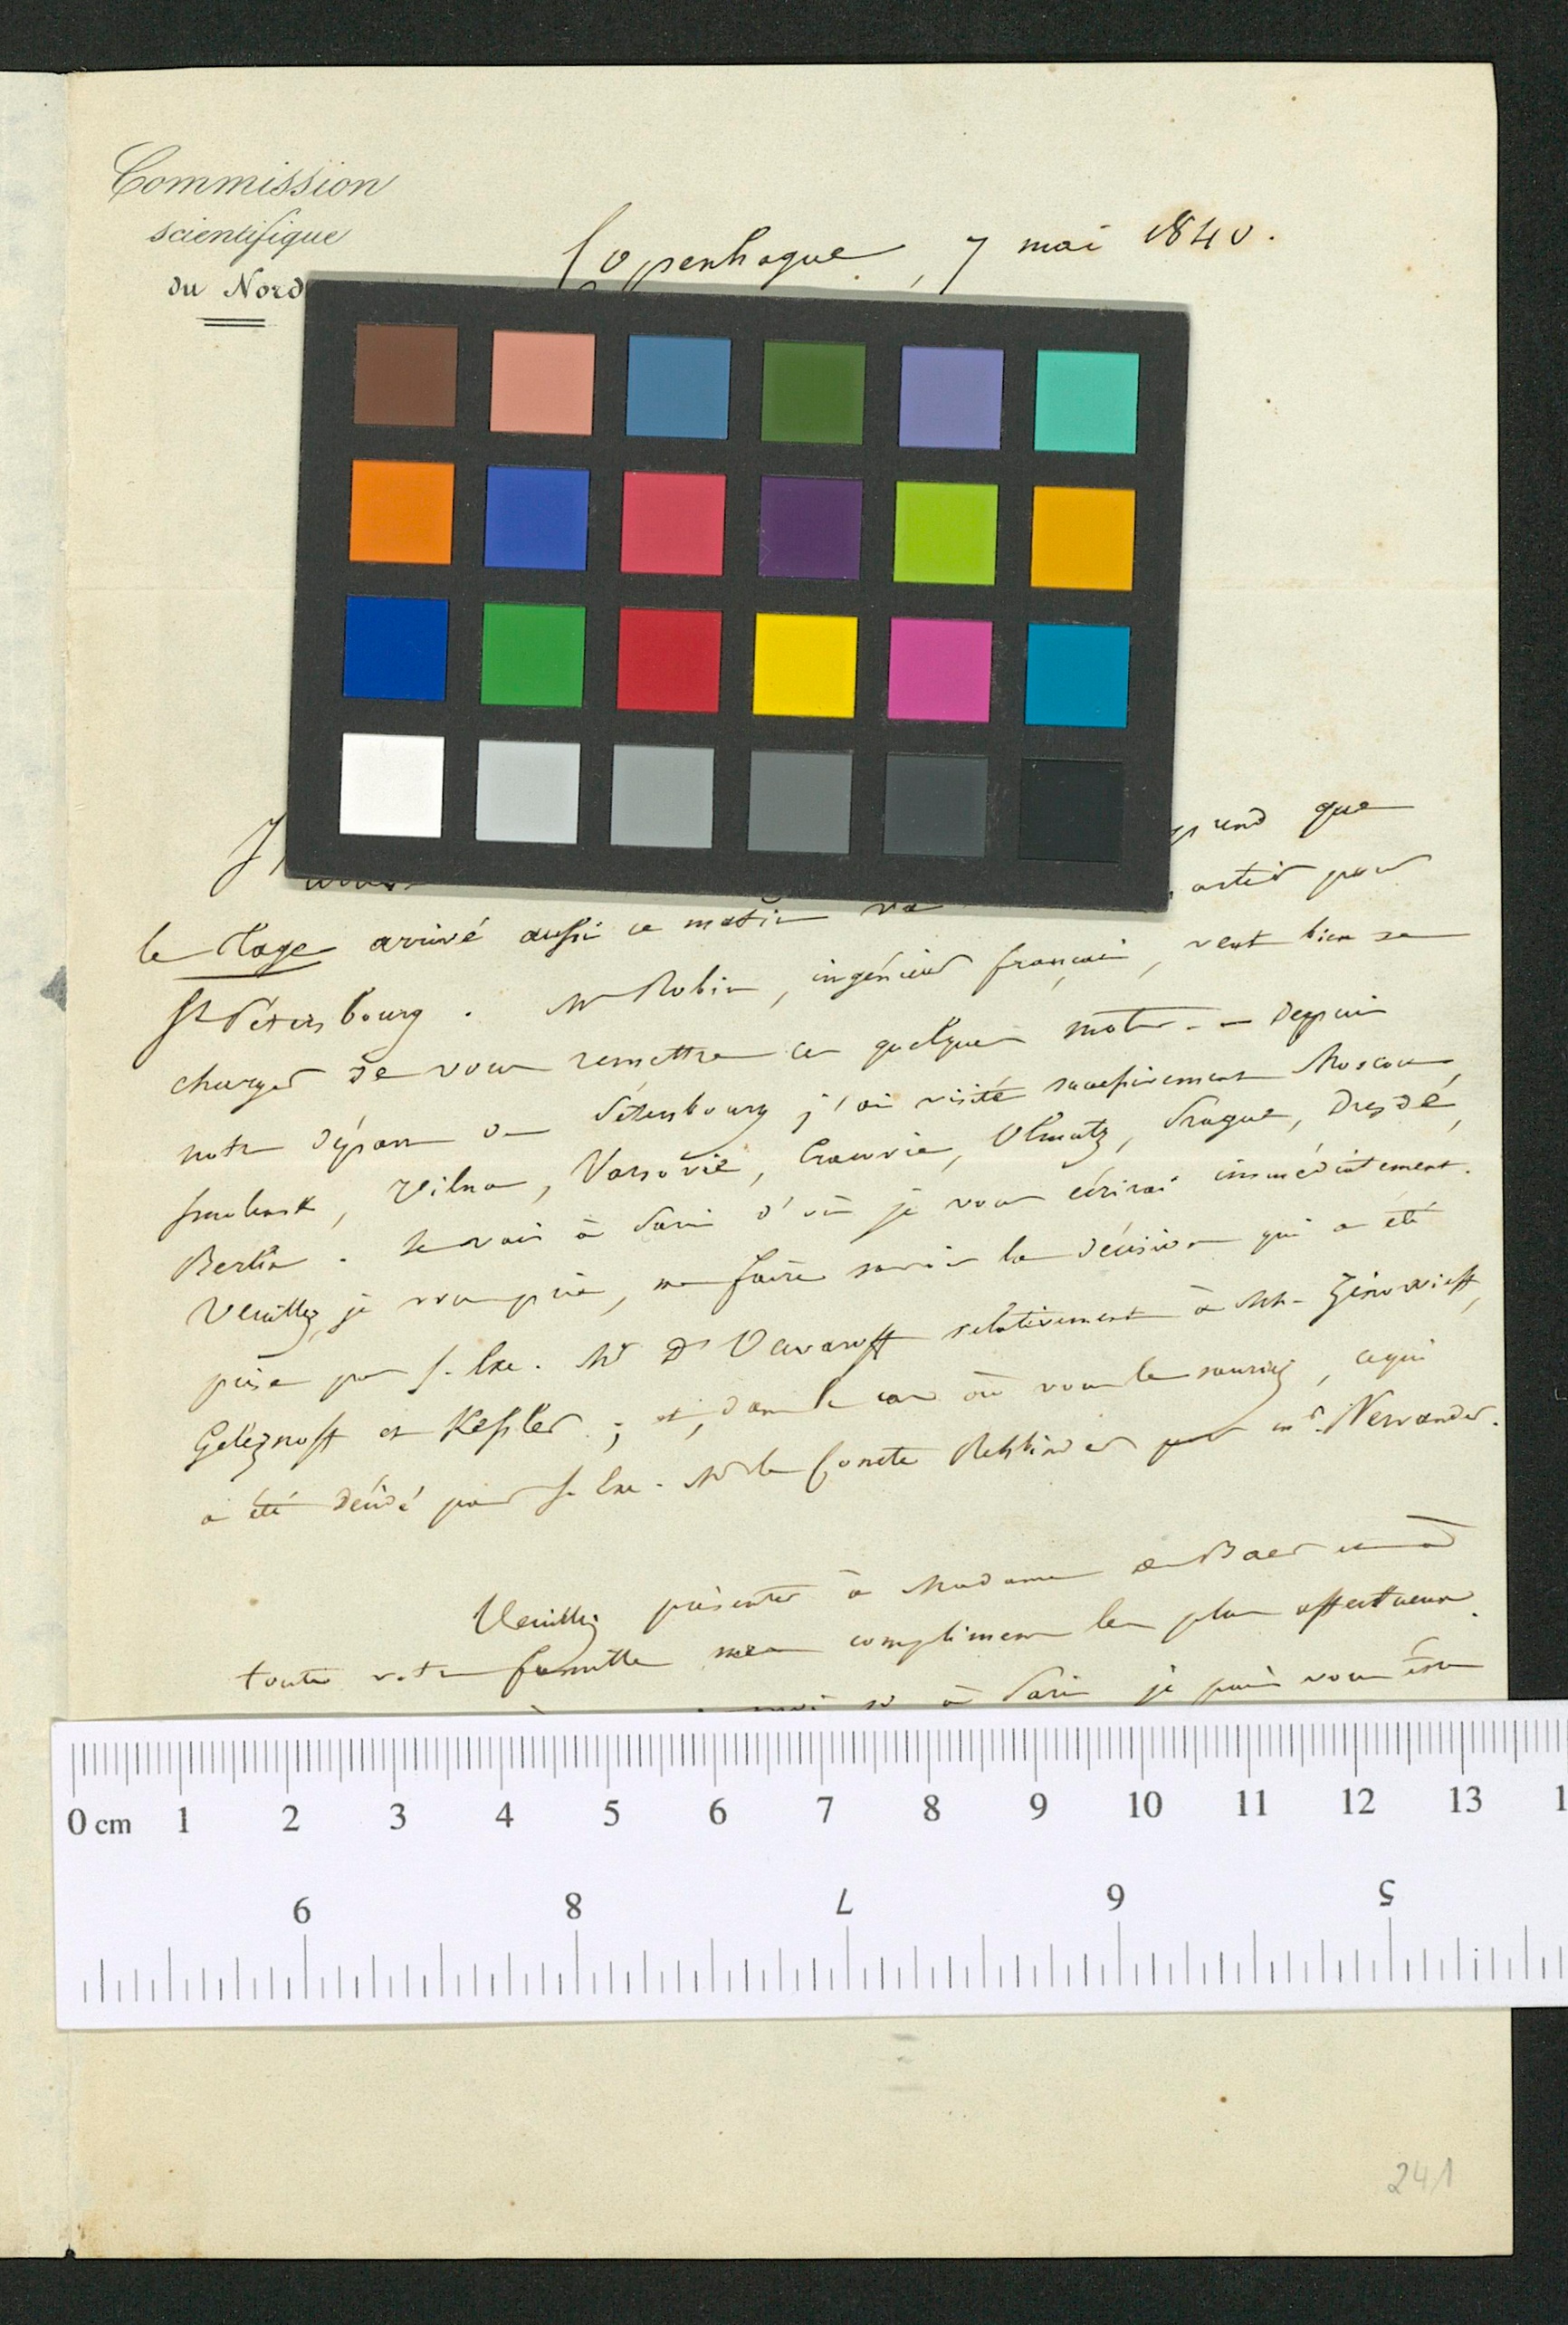 Commission
scientifique
du Nord
Copenhague, 7 mai 1840.
prend que
le Tage arrivé aussi ce matin va partir pour
St Pétersbourg. Mr Robin, ingénieur français, veut bien se
charger de vous remettre ces quelques mots. — Depuis
notre départ de Pétersbourg j'ai visité successivement Moscou,
Smolensk, Vilna, Varsovie, Cracovie, Olmutz, Prague, Dresde,
Berlin. Je vais à Paris d'où je vous écrirai immédiatement.
Veuillez, je vous prie, me faire savoir la décision qui a été
prise par S. Exc. Mr D' Ouvaroff relativement à MM. Zinovieff,
Geleznoff et Kessler; et, dans le cas où vous le sauriez, ce qui
a été décidé par S. Exc. Mr le Comte Rehbinder pour mr. Nervander.
Veuillez présenter à Madame de Baer et à
toute votre famille mes compliments les plus affectueux.
à Paris je puis vous être
0 cm 1 2 3 4 5 6 7 8 9 10 11 12 13 1
9 8 7 6 5
241